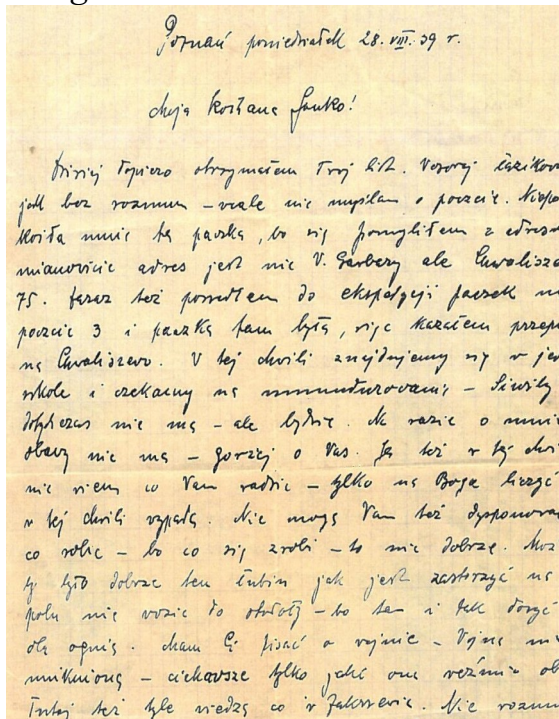 Poznań poniedziałek 28.VIII.39 r.
Moja kochana Janko!
Dzisiaj dopiero otrzymałem Twój list. Wczoraj
jak bez rozumu – wcale nie myślałem o poczcie.
mnie ta paczka, bo się pomyliłem z
mianowicie adres jest nie W. Garbary ale
75. Zaraz też poszedłem do ekspedycji paczek na
poczcie 3 i paczka tam była, więc kazałem
na Chwaliszewo. W tej chwili znajdujemy się w
szkole i czekamy na umundurowanie –
dotychczas nie ma – ale będzie. Na razie o mnie
obawy nie ma – gorzej o Was. Ja też w tej
nie wiem co Wam radzić – tylko na Boga liczyć
w tej chwili wypada. Nie mogę Wam też
co robić – bo co się zrobi – to nie dobrze.
by było dobrze ten łubin jak jest na
polu nie wozić do stodoły – bo tam i tak dosyć
dla ognia. Mam Ci pisać o wojnie – Wojna
unikniona – ciekawsze tylko jaki ona weźmie
Tutaj też tyle wiedzą co w Zakrzewie. Nie